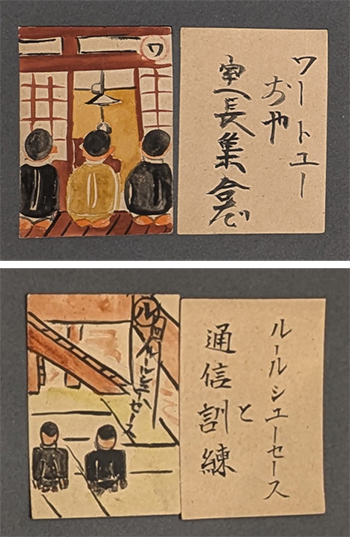 ワ
ワートユー
おや
室長集合で
ル
ルールシユーセース
ルールシユーセース
と
通信訓練